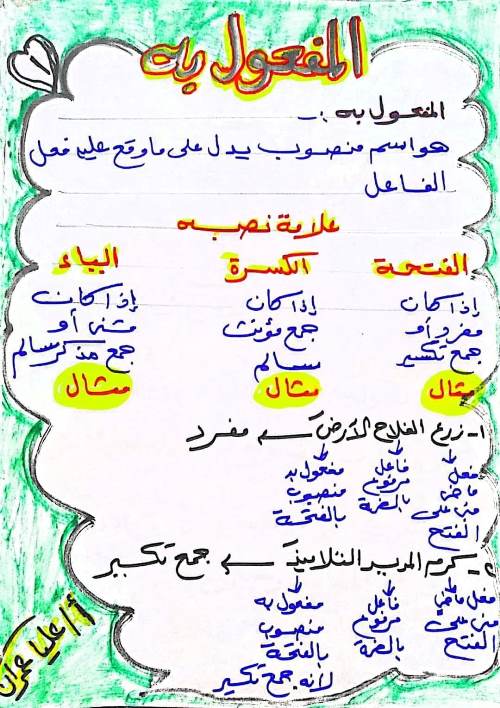 المفعول به
المفعول به :-
هو اسم منصوب يدل على ما وقع عليه فعل
الفاعل
علامة نصبه
الفتحة الكسرة الياء
إذا كان إذا كان إذا كان
مفرد أو جمع مؤنث مثنى أو
جمع تكسير سالم جمع مذكر سالم
مثال مثال مثال
١- زرع الفلاح الأرض ← مفرد
فعل فاعل مفعول به
ماض مرفوع منصوب
مبني على بالضمة بالفتحة
الفتح
٢- كرم المدير التلاميذ ← جمع تكسير
فعل ماض فاعل مفعول به
مبني على مرفوع منصوب
الفتح بالضمة بالفتحة
لأنه جمع تكسير
أ/ عليا عمران